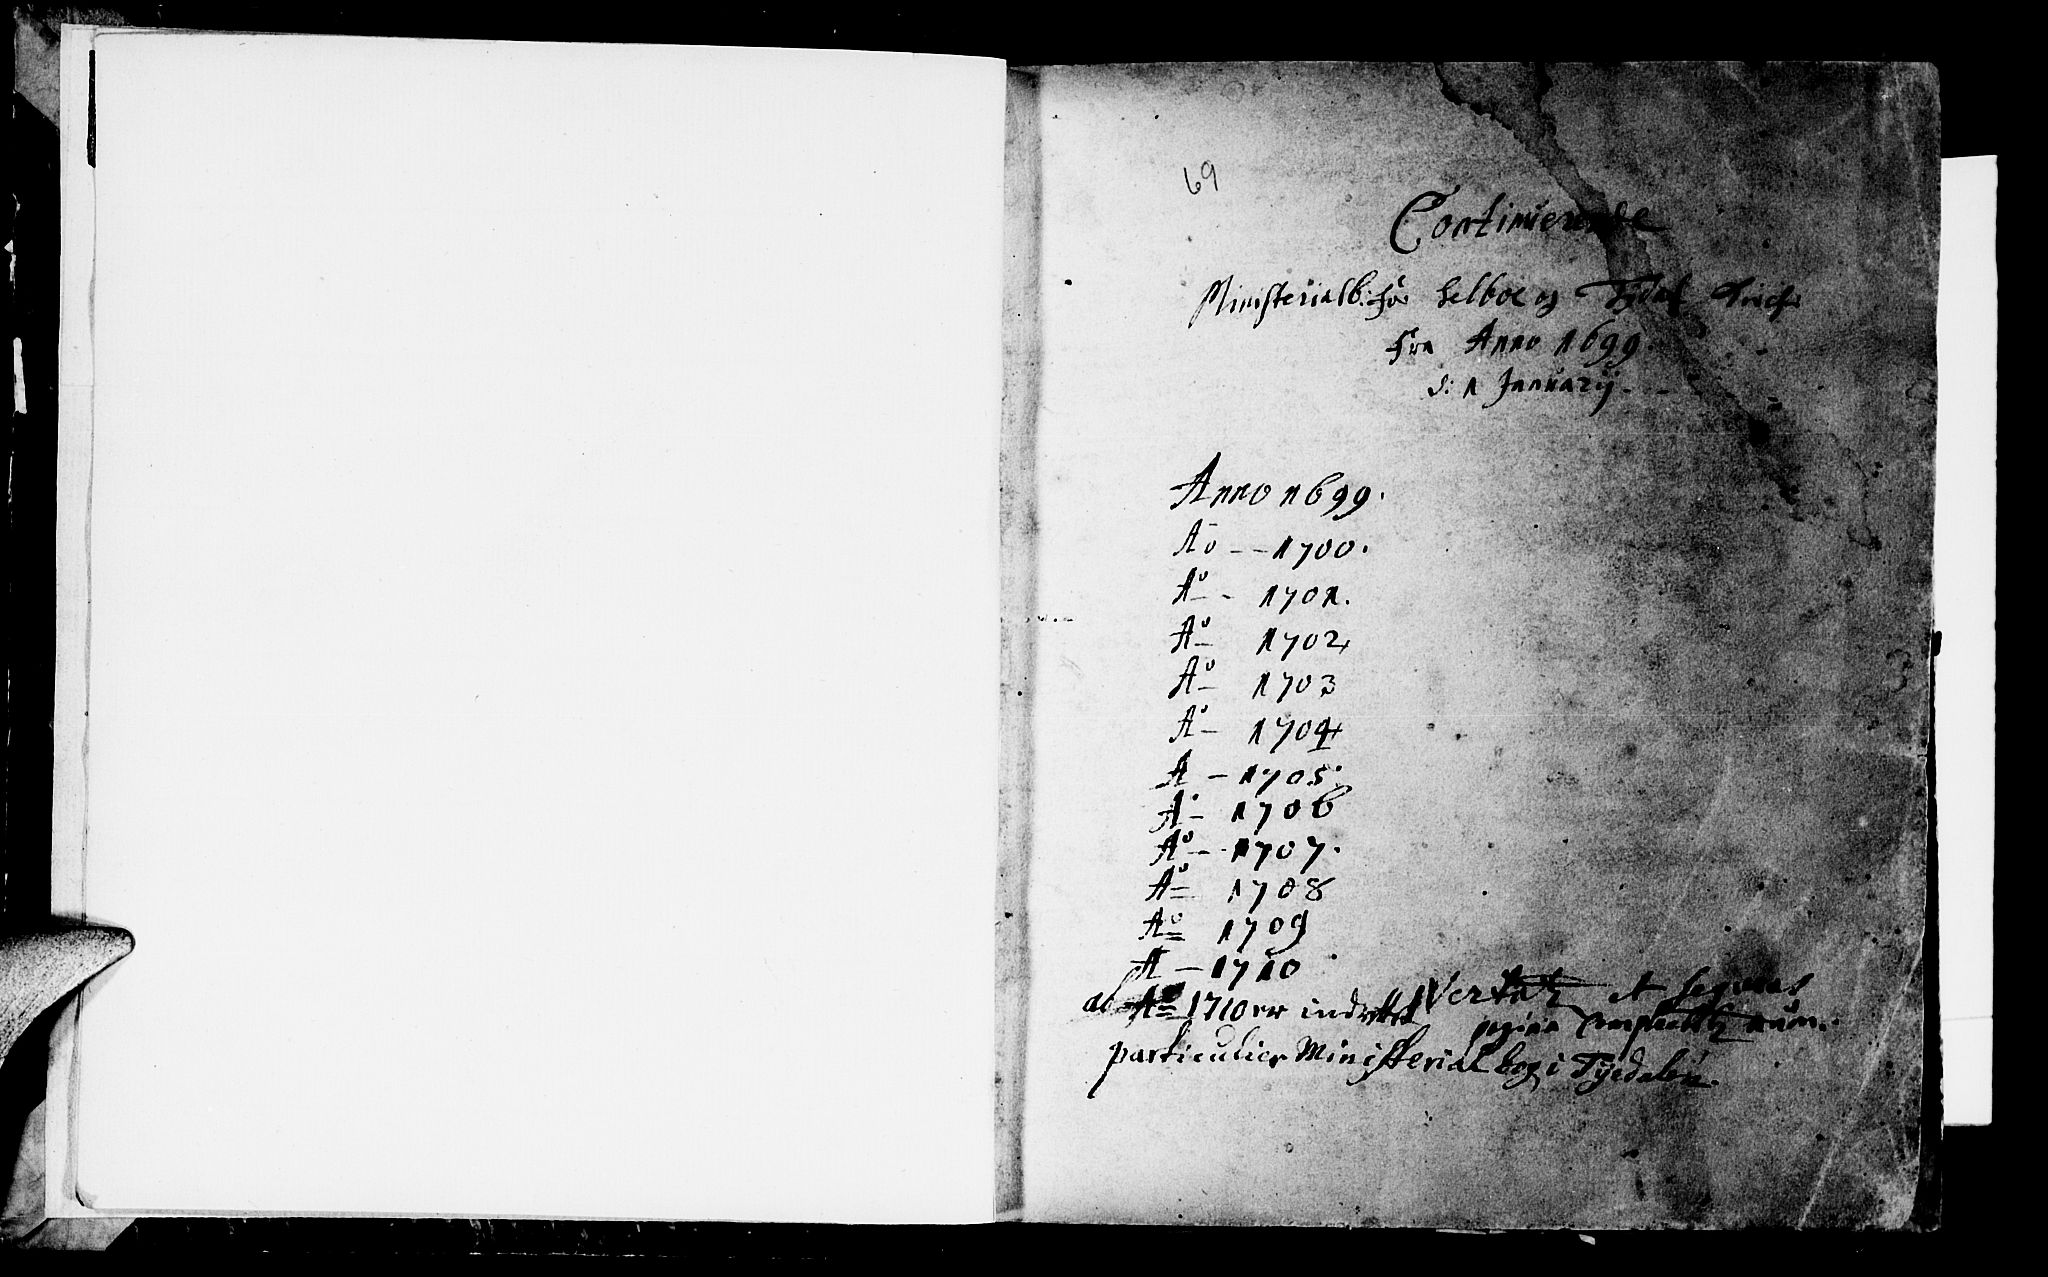 69
Continuerende
Ministerialb: for Selboe og Tydals
Fra Anno 1699
d: 1 Januarij
Anno 1699.
Ao - - 1700.
Ao - 1701.
Ao 1702
Ao 1703
Ao 1704
A - 1705.
A - 1706
Ao - 1707.
Ao 1708
Ao 1709
A - 1710
Vertatz et seqvens
ab Ao 1710 er indrettet
pagina num:
particulier Ministerial bog i Tyedalen.